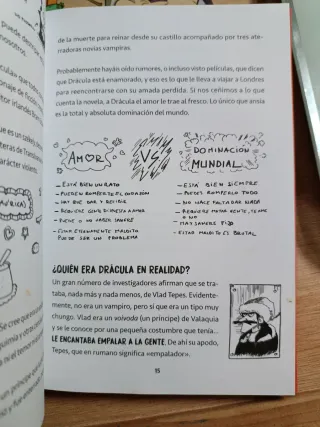 de la muerte para reinar desde su castillo acompañado por tres ate-
rradoras novias vampiras.
Probablemente hayáis oído rumores, o incluso visto películas, que dicen
que Drácula está enamorado, y eso es lo que le lleva a viajar a Londres
para reencontrarse con su amada perdida. Si nos ceñimos a lo que
cuenta la novela, a Drácula el amor le trae al fresco. Lo único que ansía
es la total y absoluta dominación del mundo.
AMOR
VS
DOMINACION
MUNDIAL
- ESTÁ BIEN UN RATO
- PUEDEN ROMPERTE EL CORAZÓN
- HAY QUE DAR Y RECIBIR
- REQUIERE
- PUEDE O NO HABER SANGRE
- ESTAR ETERNAMENTE MALDITO
PUEDE SER UN PROBLEMA
- ESTÁ BIEN SIEMPRE
- PUEDES ROMPERLO TODO
- NO HACE FALTA DAR NADA
- REQUIERE MATAR GENTE, TE AME
O NO
- HAY SANGRE FIJO
- ESTAR MALDITO ES BRUTAL
¿QUIÉN ERA DRÁCULA EN REALIDAD?
Un gran número de investigadores afirman que se tra-
taba, nada más y nada menos, de Vlad Tepes. Evidente-
mente, no era un vampiro, pero sí que era un tipo muy
chungo. Vlad era un voivoda (un príncipe) de Valaquia
y se le conoce por una pequeña costumbre que tenía...
LE ENCANTABA EMPALAR A LA GENTE. De ahí su apodo,
Tepes, que en rumano significa «empalador».
15